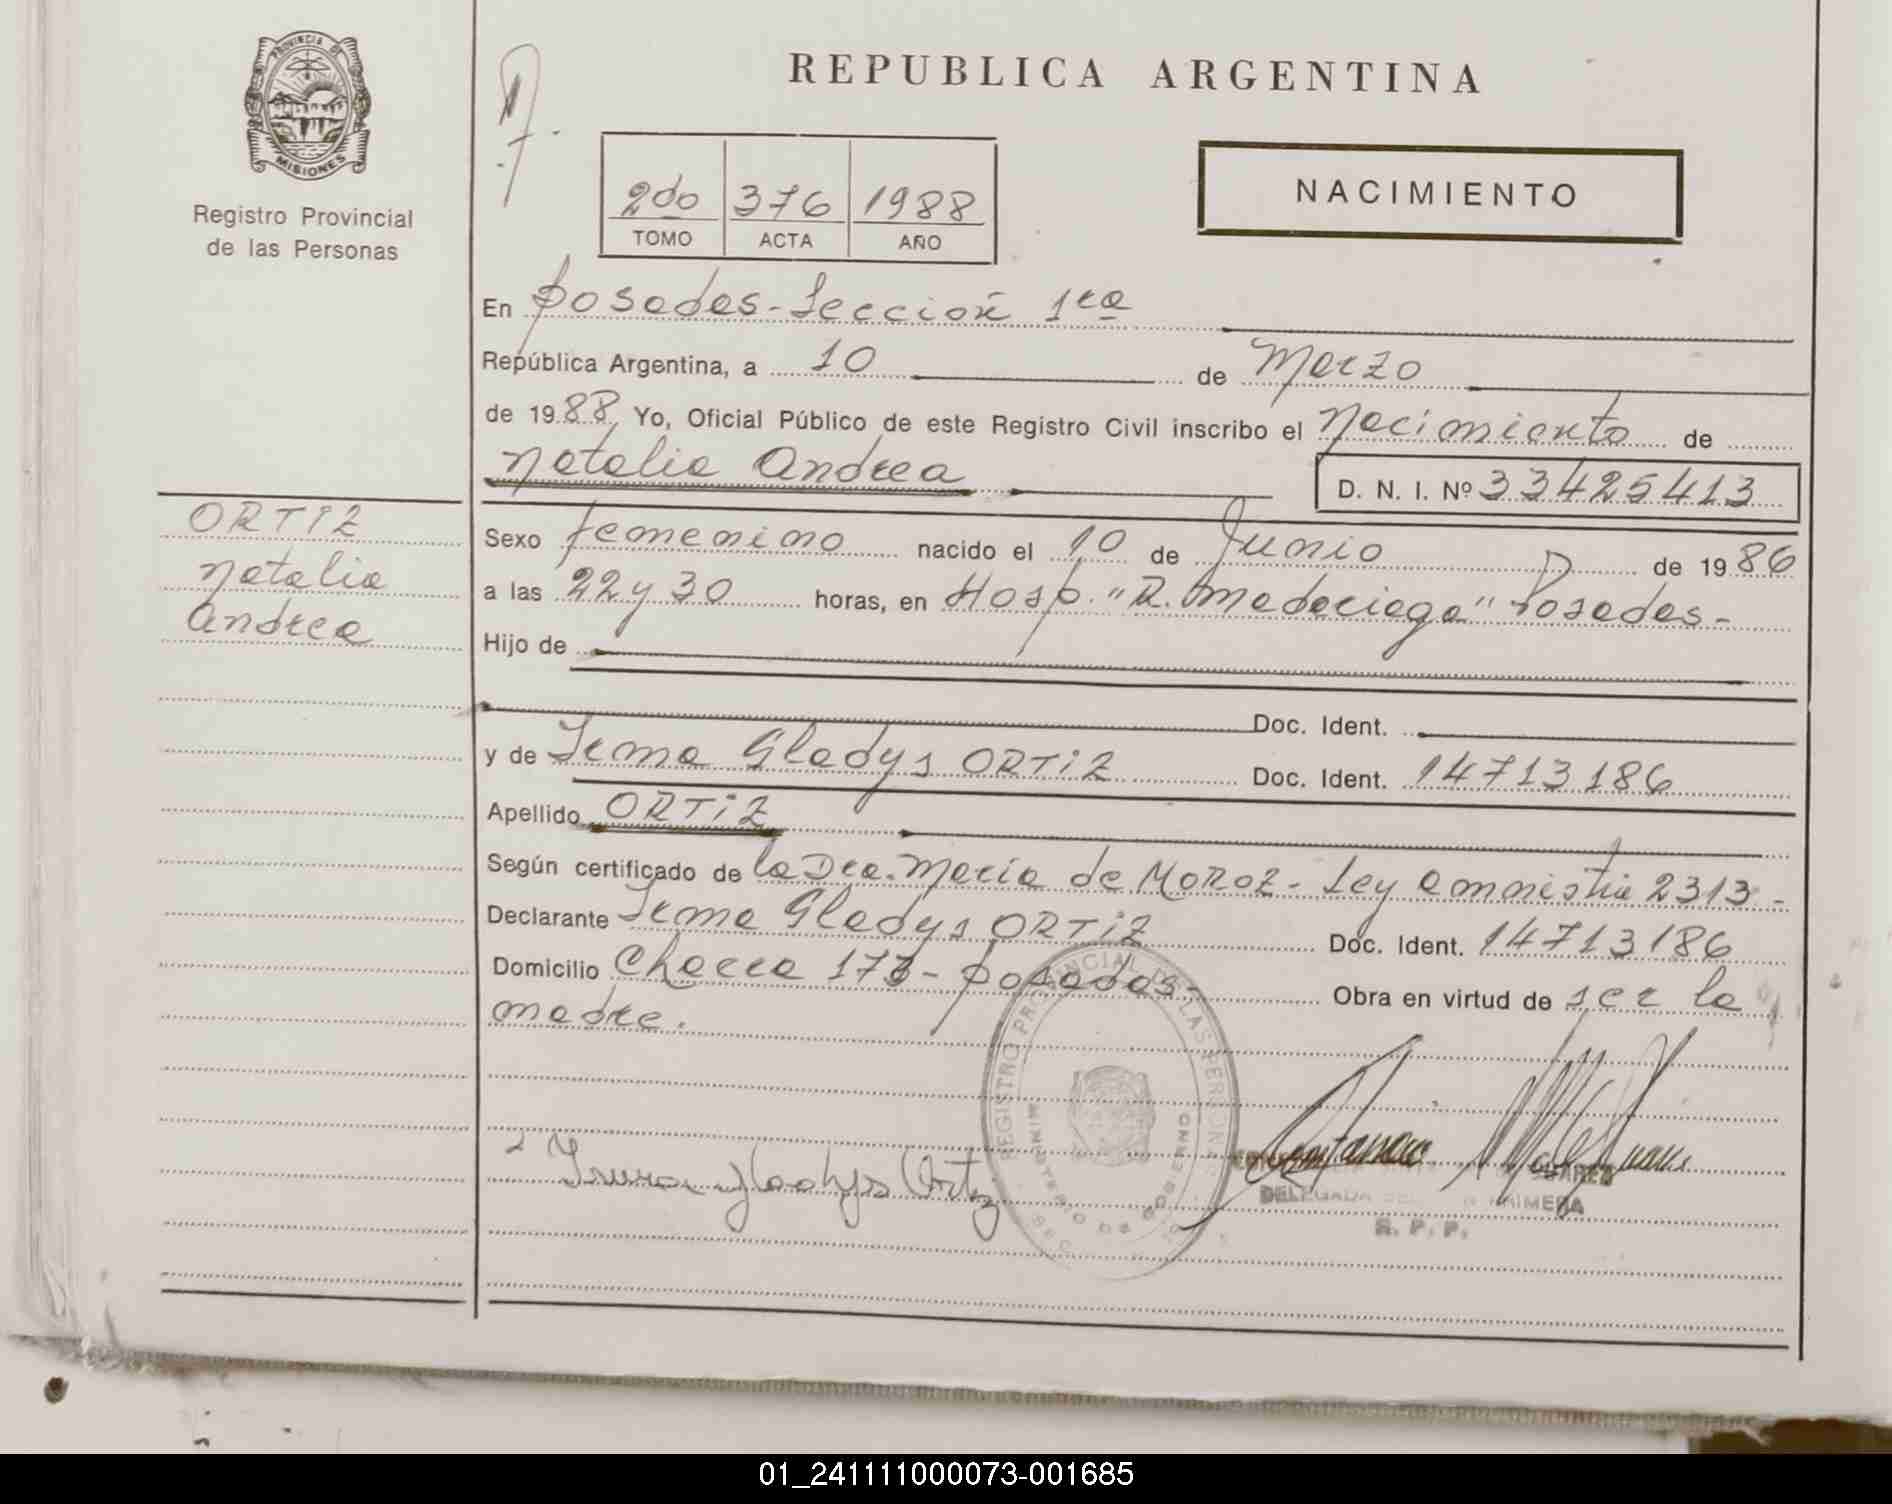 PROVINCIA DE
MISIONES
Registro Provincial
de las Personas
REPUBLICA ARGENTINA
2do 376 1988
TOMO ACTA AÑO
NACIMIENTO
En Posadas-Sección 1ra
República Argentina, a 10 de Marzo
de 1988 Yo, Oficial Público de este Registro Civil inscribo el Nacimiento de
Natalia Andrea D. N. I. Nº 33425413
ORTIZ
Natalia
Andrea
Sexo femenino nacido el 10 de Junio de 1986
a las 22 y 30 horas, en Hosp. "R. Madariaga" Posadas-
Hijo de
Doc. Ident.
y de Irma Gladys ORTIZ Doc. Ident. 14713186
Apellido ORTIZ
Según certificado de la Dra. María de MOROZ- Ley amnistia 2313-
Declarante Irma Gladys ORTIZ Doc. Ident. 14713186
Domicilio Chacra 173- Posadas- Obra en virtud de ser la
madre.
REGISTRO PROVINCIAL DE LAS PERSONAS
MINISTERIO DE GOBIERNO
Irma Gladys Ortiz
SUAREZ
DELEGADA PRIMERA
R. P. P.
01_241111000073-001685